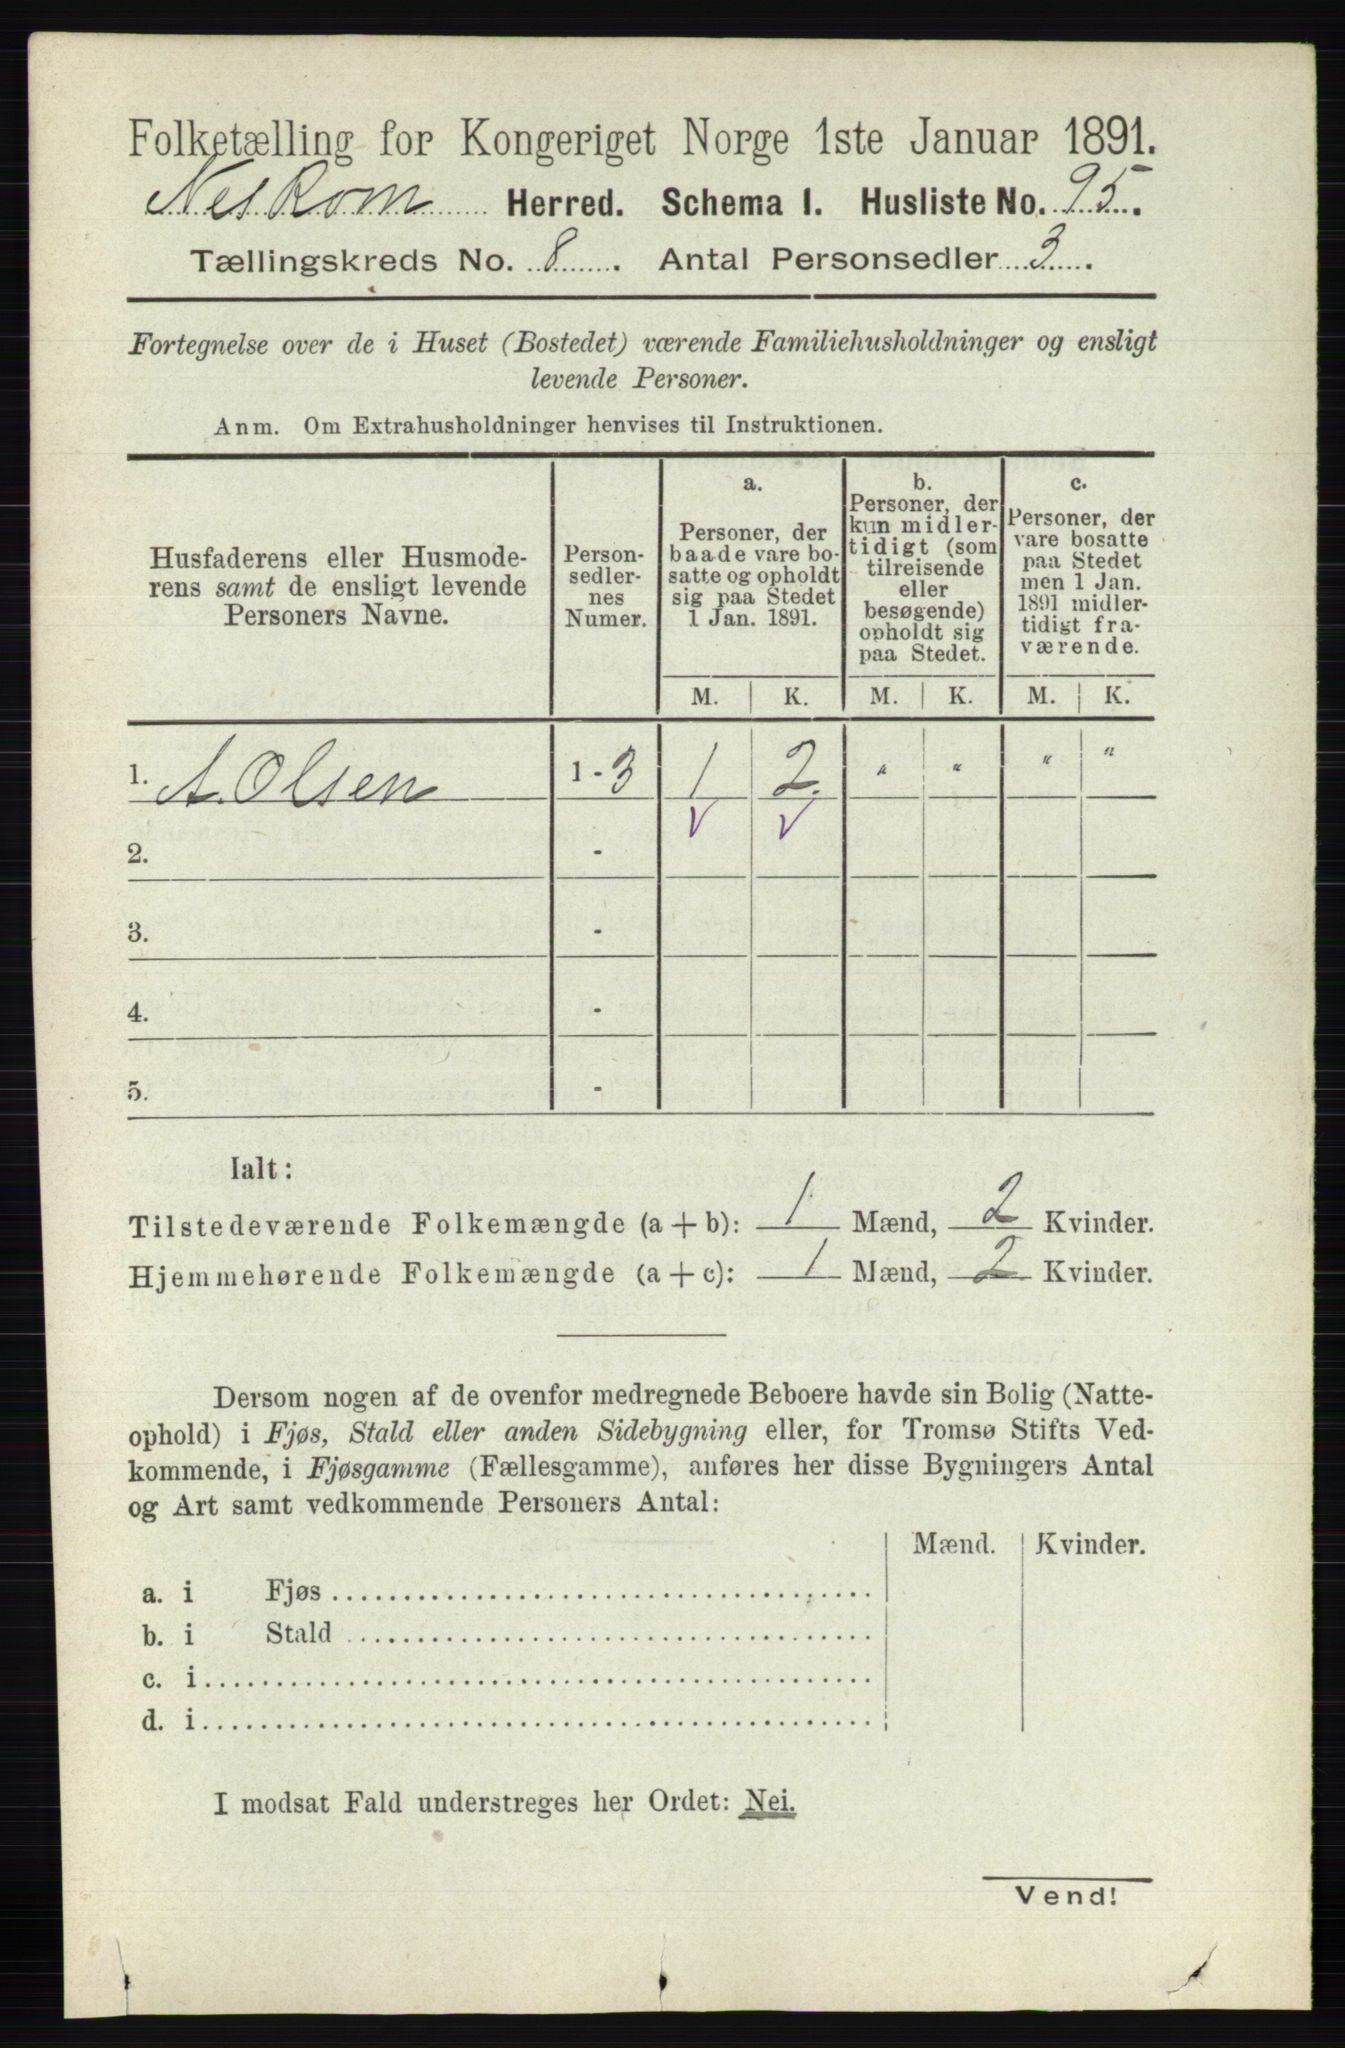 Folketælling for Kongeriget Norge 1ste Januar 1891.
Nes Rom Herred. Schema I. Husliste No. 95.
Tællingskreds No. 8. Antal Personsedler 3.
Fortegnelse over de i Huset (Bostedet) værende Familiehusholdninger og ensligt
levende Personer.
Anm. Om Extrahusholdninger henvises til Instruktionen.
Husfaderens eller Husmode-
rens samt de ensligt levende
Personers Navne.
Person-
sedler-
nes
Numer.
a.
Personer, der
baade vare bo-
satte og opholdt
sig paa Stedet
1 Jan. 1891.
b.
Personer, der
kun midler-
tidigt (som
tilreisende
eller
besøgende)
opholdt sig
paa Stedet.
c.
Personer, der
vare bosatte
paa Stedet
men 1 Jan.
1891 midler-
tidigt fra-
værende.
M. K. M. K. M. K.
1. A. Olsen 1 - 3 1 2. " " " "
V V
2. -
3. -
4. -
5. -
Ialt:
Tilstedeværende Folkemængde (a + b): 1 Mænd, 2 Kvinder.
Hjemmehørende Folkemængde (a + c): 1 Mænd, 2 Kvinder.
Dersom nogen af de ovenfor medregnede Beboere havde sin Bolig (Natte-
ophold) i Fjøs, Stald eller anden Sidebygning eller, for Tromsø Stifts Ved-
kommende, i Fjøsgamme (Fællesgamme), anføres her disse Bygningers Antal
og Art samt vedkommende Personers Antal:
Mænd. Kvinder.
a. i Fjøs
b. i Stald
c. i
d. i
I modsat Fald understreges her Ordet: Nei.
Vend!